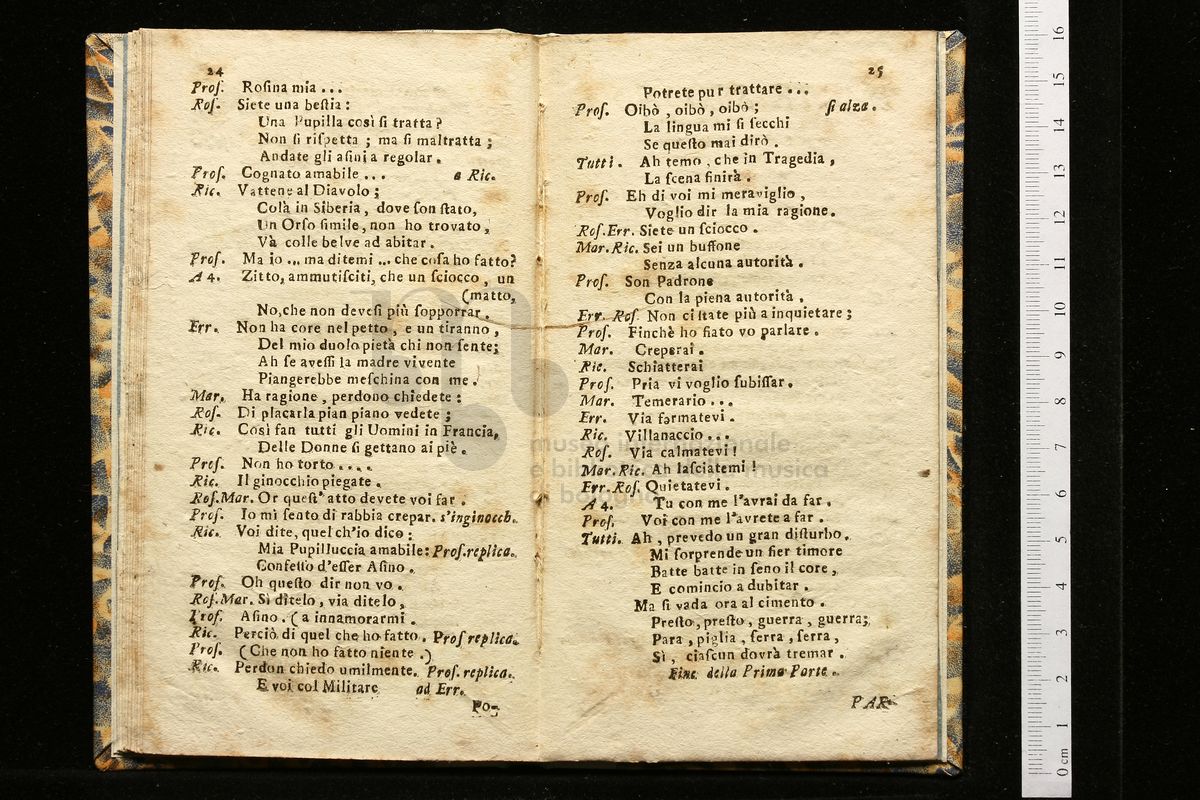 24
Proſ. Roſina mia ...
Roſ. Siete una beſtia :
Una Pupilla così ſi tratta ?
Non ſi riſpetta ; ma ſi maltratta ;
Andate gli aſini a regolar .
Proſ. Cognato amabile ... a Ric.
Ric. Vattene al Diavolo ;
Colà in Siberia , dove ſon ſtato,
Un Orſo ſimile, non ho trovato ,
Và colle belve ad abitar .
Proſ. Ma io ... ma ditemi ... che coſa ho fatto?
A 4. Zitto, ammutiſciti, che un ſciocco , un
(matto,
No,che non deveſi più ſopporrar .
Err. Non ha core nel petto , e un tiranno ,
Del mio duolo pietà chi non ſente;
Ah ſe aveſſi la madre vivente
Piangerebbe meſchina con me .
Mar. Ha ragione , perdono chiedete :
Roſ. Di placarla pian piano vedete ;
Ric. Così fan tutti gli Uomini in Francia,
Delle Donne ſi gettano ai piè .
Proſ. Non ho torto ....
Ric. Il ginocchio piegate .
Roſ.Mar. Or queſt' atto devete voi far .
Proſ. Io mi ſento di rabbia crepar. s'inginocch.
Ric. Voi dite, quel ch'io dico :
Mia Pupilluccia amabile: Proſ.replica.
Confeſſo d'eſſer Aſino .
Proſ. Oh queſto dir non vo .
Roſ.Mar. Sì ditelo , via ditelo ,
Proſ. Aſino . ( a innamorarmi .
Ric. Perciò di quel che ho fatto . Proſ replica.
Proſ. (Che non ho fatto niente .)
Ric. Perdon chiedo umilmente. Proſ. replica.
E voi col Militare ad Err.
Po-
25
Potrete pur trattare ...
Proſ. Oibò , oibò , oibò ; ſi alza .
La lingua mi ſi ſecchi
Se queſto mai dirò .
Tutti . Ah temo , che in Tragedia ,
La ſcena finirà .
Proſ. Eh di voi mi meraviglio ,
Voglio dir la mia ragione .
Roſ.Err. Siete un ſciocco .
Mar.Ric. Sei un buffone
Senza alcuna autorità .
Proſ. Son Padrone
Con la piena autorità .
Err. Roſ. Non ci ſtate più a inquietare ;
Proſ. Finchè ho fiato vo parlare .
Mar. Creperai .
Ric. Schiatterai
Proſ. Pria vi voglio ſubiſſar .
Mar. Temerario ...
Err. Via fermatevi .
Ric. Villanaccio ...
Roſ. Via calmatevi !
Mar.Ric. Ah laſciatemi !
Err.Roſ. Quietatevi .
A 4. Tu con me l'avrai da far .
Proſ. Voi con me l'avrete a far .
Tutti. Ah , prevedo un gran diſturbo .
Mi ſorprende un fier timore
Batte batte in ſeno il core ,
E comincio a dubitar .
Ma ſi vada ora al cimento .
Preſto, preſto , guerra , guerra;
Para , piglia , ferra , ferra ,
Sì , ciaſcun dovrà tremar .
Fine della Prima Parte .
PAR-
museo internazionale
e biblioteca della musica
di bologna